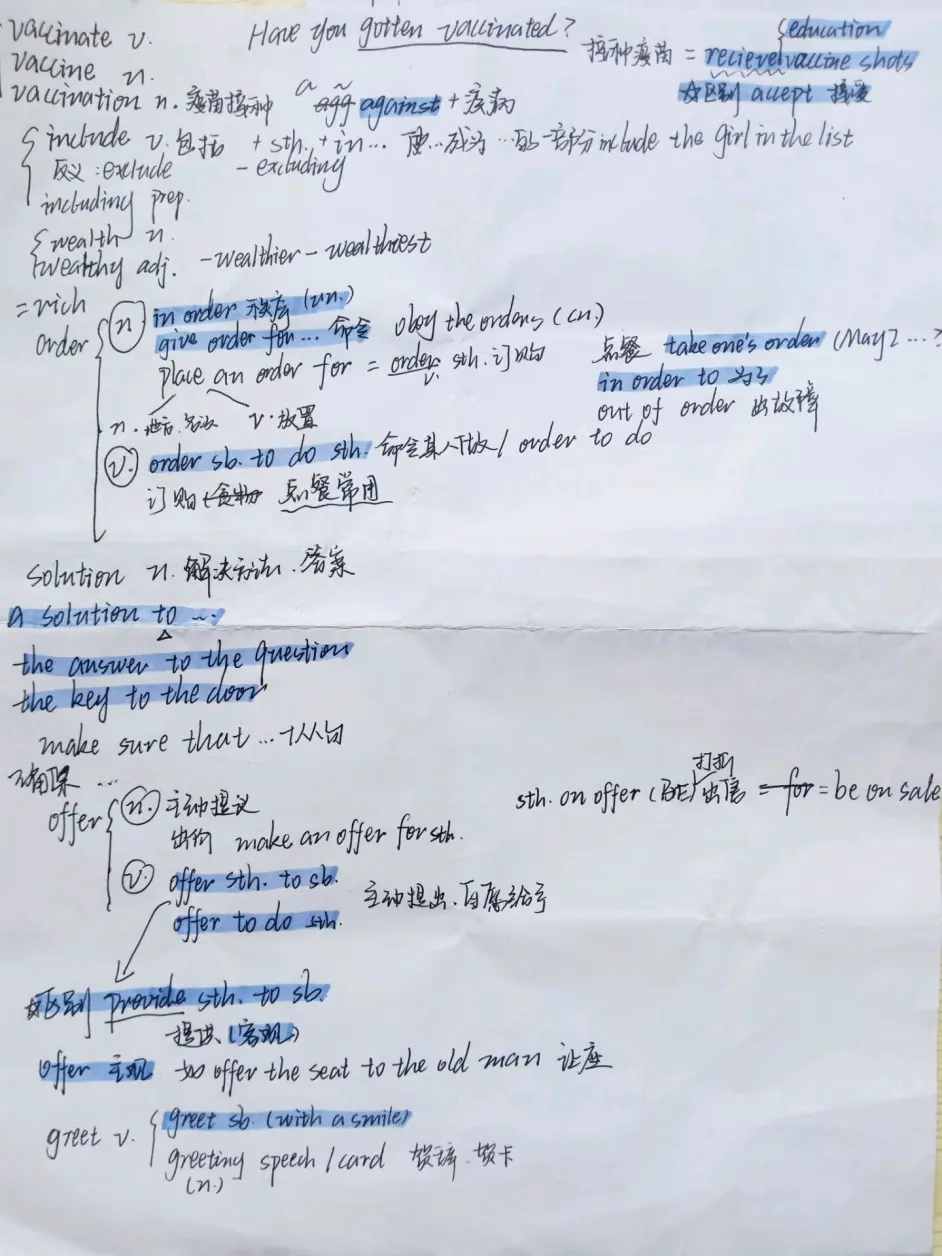 vaccinate v. Have you gotten vaccinated? {education
vaccine n. 接种疫苗 = recieve vaccine shots
vaccination n. 疫苗接种 against + 疾病 ☆区别 accept 接受
{ include v. 包括 + sth. + in... 使...成为...的一部份 include the girl in the list
反义: exclude - excluding
including prep.
{ wealth n.
wealthy adj. - wealthier - wealthiest
= rich
order { n in order 秩序 (un.)
give order for... 命令 obey the orders (cn.)
place an order for = order sth. 订购 点餐 take one's order (May I ...?
v. in order to 为了
n. 地方. v. 放置 out of order 出故障
v. order sb. to do sth. 命令某人做 / order to do
订购 食物 点餐常用
solution n. 解决方法. 答案
a solution to ...
the answer to the question
the key to the door
make sure that ... +从句
确保 ...
offer { n. 主动提议 sth. on offer (BE) 打折 出售 = for = be on sale
出价 make an offer for sth.
v. offer sth. to sb. 主动提出. 自愿给予
offer to do sth.
☆区别 provide sth. to sb.
提供 (客观)
offer 主观 如 offer the seat to the old man 让座
greet v. { greet sb. (with a smile)
greeting speech / card 贺辞. 贺卡
(n.)